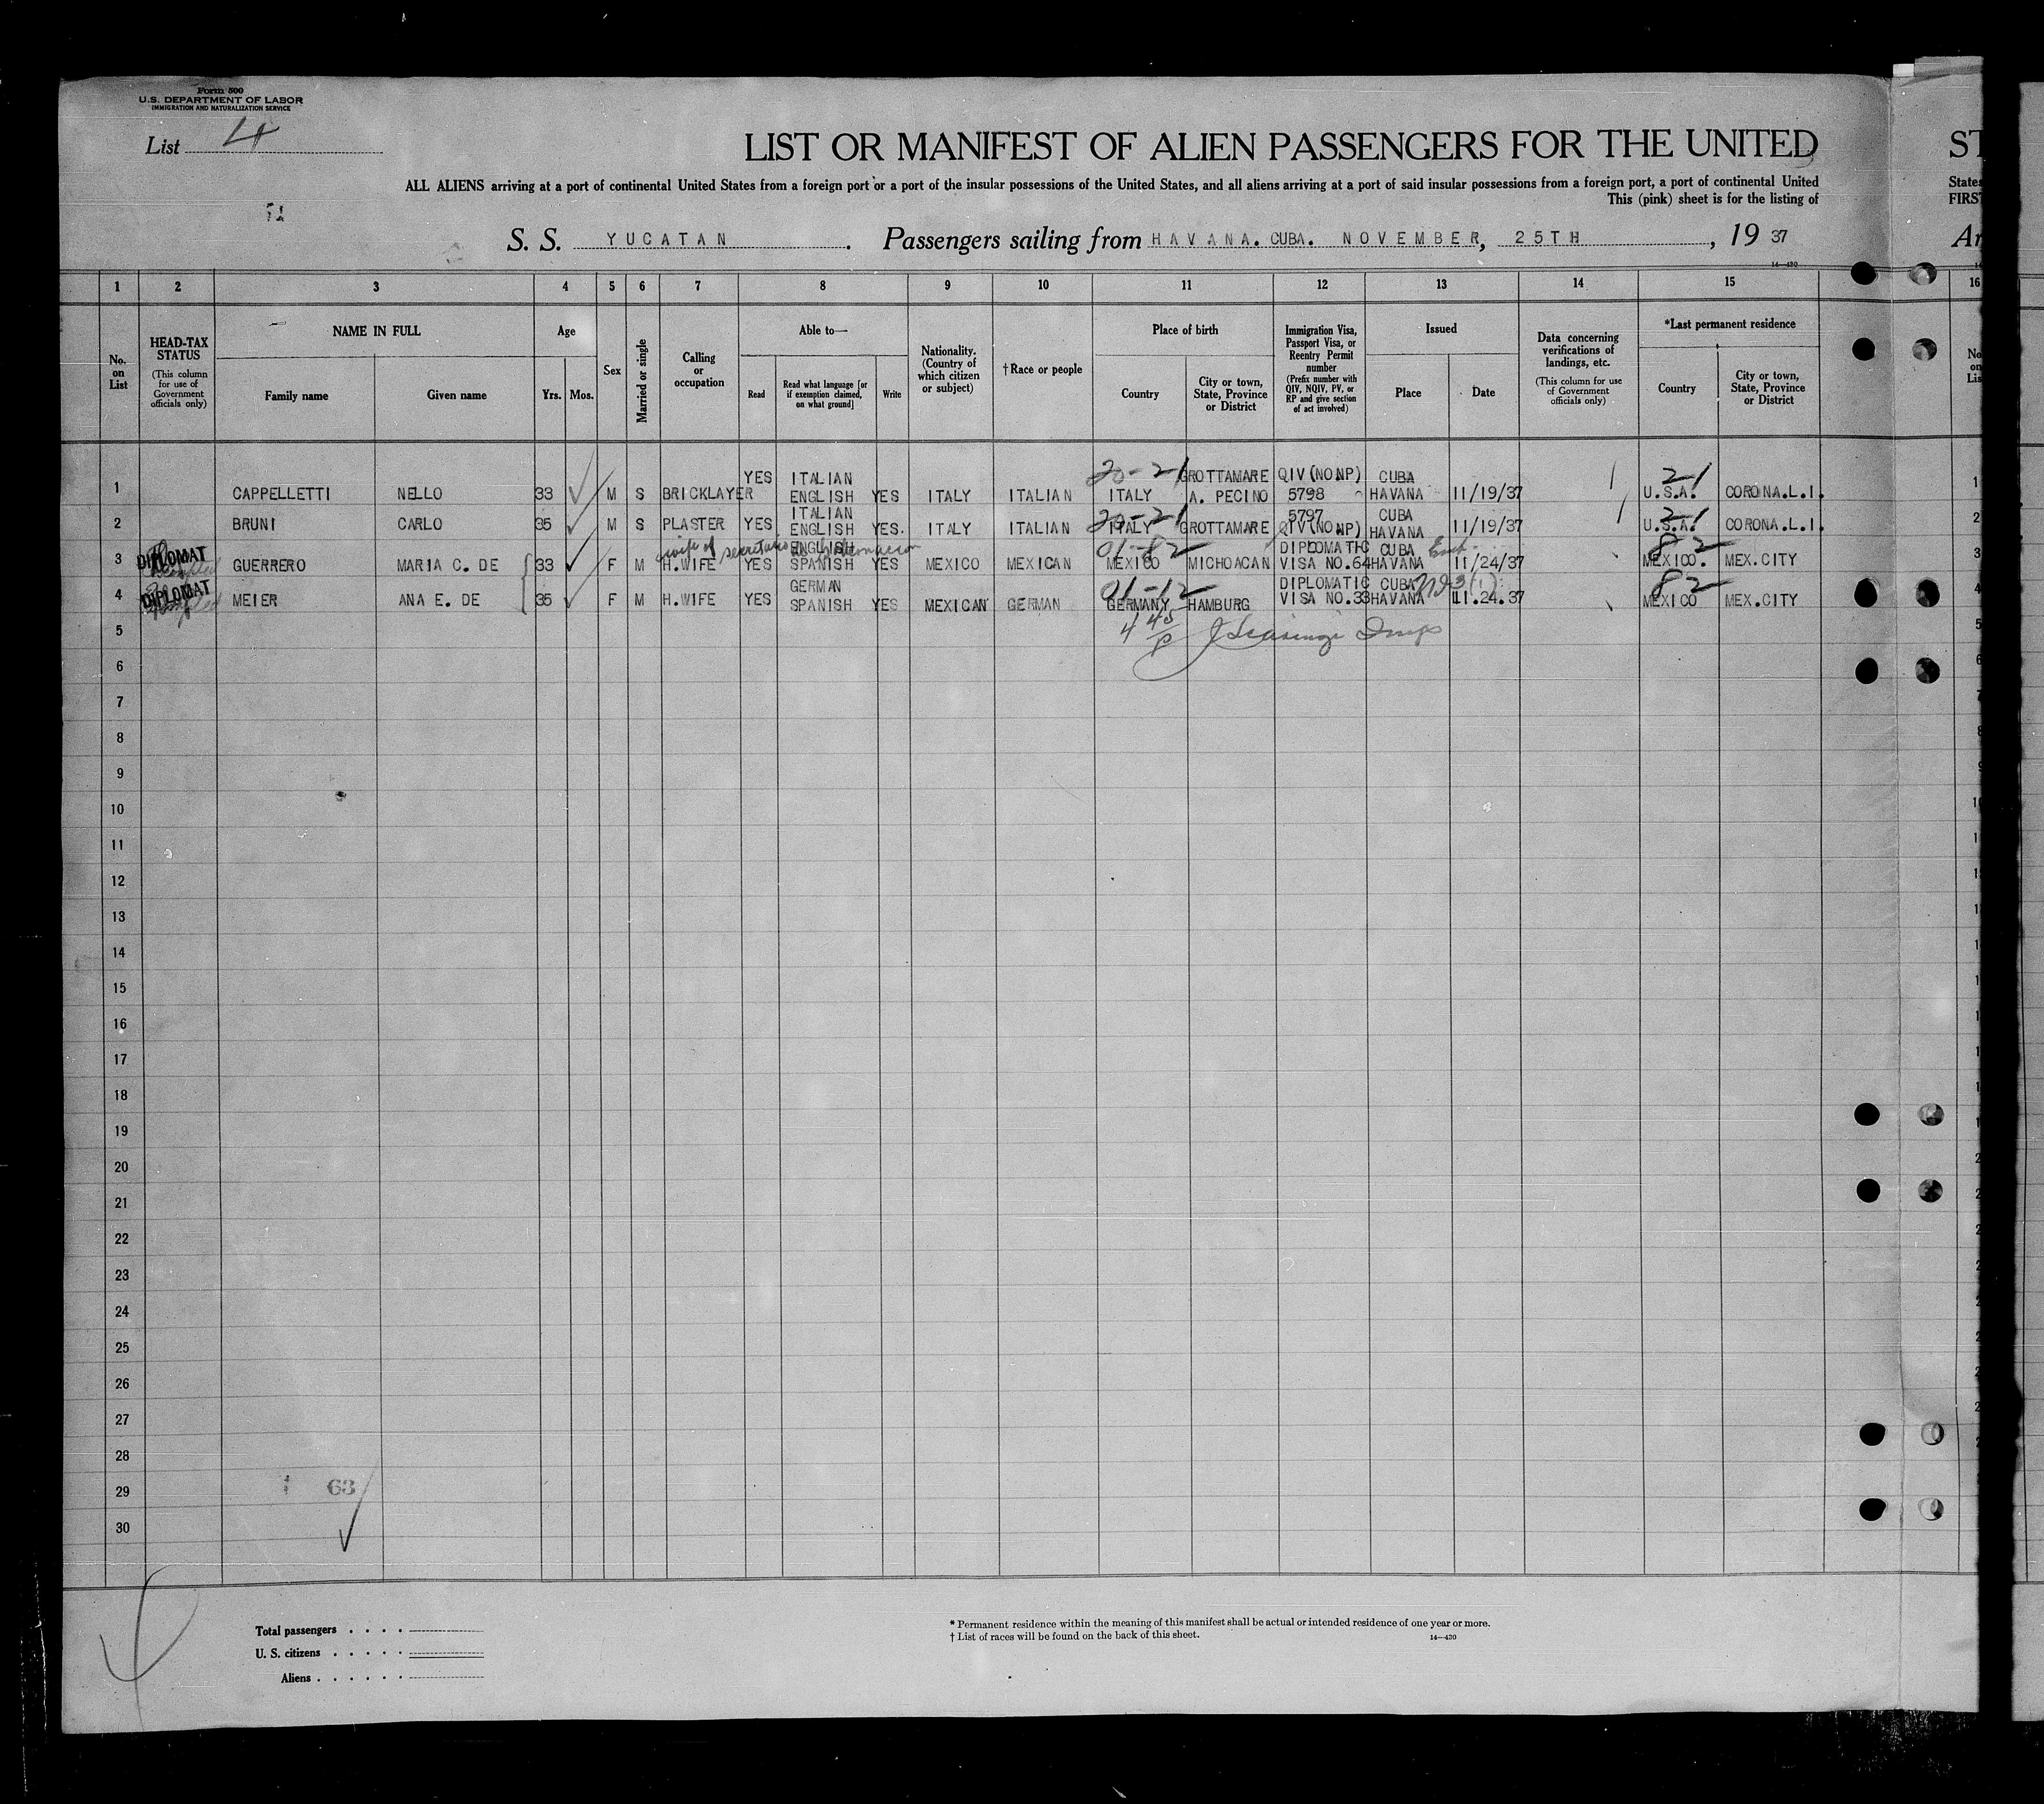 Form 500
U.S. DEPARTMENT OF LABOR
IMMIGRATION AND NATURALIZATION SERVICE
List 4
LIST OR MANIFEST OF ALIEN PASSENGERS FOR THE UNITED ST
ALL ALIENS arriving at a port of continental United States from a foreign port or a port of the insular possessions of the United States, and all aliens arriving at a port of said insular possessions from a foreign port, a port of continental United States
This (pink) sheet is for the listing of FIRST
S. S. YUCATAN. Passengers sailing from HAVANA. CUBA. NOVEMBER, 25TH, 19 37 Ar
14—430
1 2 3 4 5 6 7 8 9 10 11 12 13 14 15 16
No. on List
HEAD-TAX STATUS
(This column for use of Government officials only)
NAME IN FULL
Family name Given name
Age
Yrs. Mos.
Sex
Married or single
Calling or occupation
Able to—
Read
Read what language [or if exemption claimed, on what ground]
Write
Nationality. (Country of which citizen or subject)
†Race or people
Place of birth
Country
City or town, State, Province or District
Immigration Visa, Passport Visa, or Reentry Permit number
(Prefix number with QIV, NQIV, PV, or RP and give section of act involved)
Issued
Place Date
Data concerning verifications of landings, etc.
(This column for use of Government officials only)
*Last permanent residence
Country
City or town, State, Province or District
1 CAPPELLETTI NELLO 33 M S BRICKLAYER YES ITALIAN ENGLISH YES ITALY ITALIAN 20-21 ITALY GROTTAMARE A. PECINO QIV(NO.NP) 5798 CUBA HAVANA 11/19/37 21 U.S.A. CORONA.L.I. 1
2 BRUNI CARLO 35 M S PLASTER YES ITALIAN ENGLISH YES. ITALY ITALIAN 20-21 ITALY GROTTAMARE 5797 QIV(NO.NP) CUBA HAVANA 11/19/37 21 U.S.A. CORONA.L.I. 2
3 DIPLOMAT GUERRERO MARIA C. DE 33 F M wife of H.WIFE YES ENGLISH SPANISH YES MEXICO MEXICAN 01-82 MEXICO MICHOACAN DIPLOMATIC VISA NO.64 CUBA HAVANA 11/24/37 82 MEXICO. MEX.CITY 3
4 DIPLOMAT MEIER ANA E. DE 35 F M H.WIFE YES GERMAN SPANISH YES MEXICAN GERMAN 01-12 GERMANY HAMBURG DIPLOMATIC VISA NO.33 CUBA HAVANA 11.24.37 82 MEXICO MEX.CITY 4
5
6
7
8
9
10
11
12
13
14
15
16
17
18
19
20
21
22
23
24
25
26
27
28
29 63
30
Total passengers
U. S. citizens
Aliens
* Permanent residence within the meaning of this manifest shall be actual or intended residence of one year or more.
† List of races will be found on the back of this sheet. 14—430